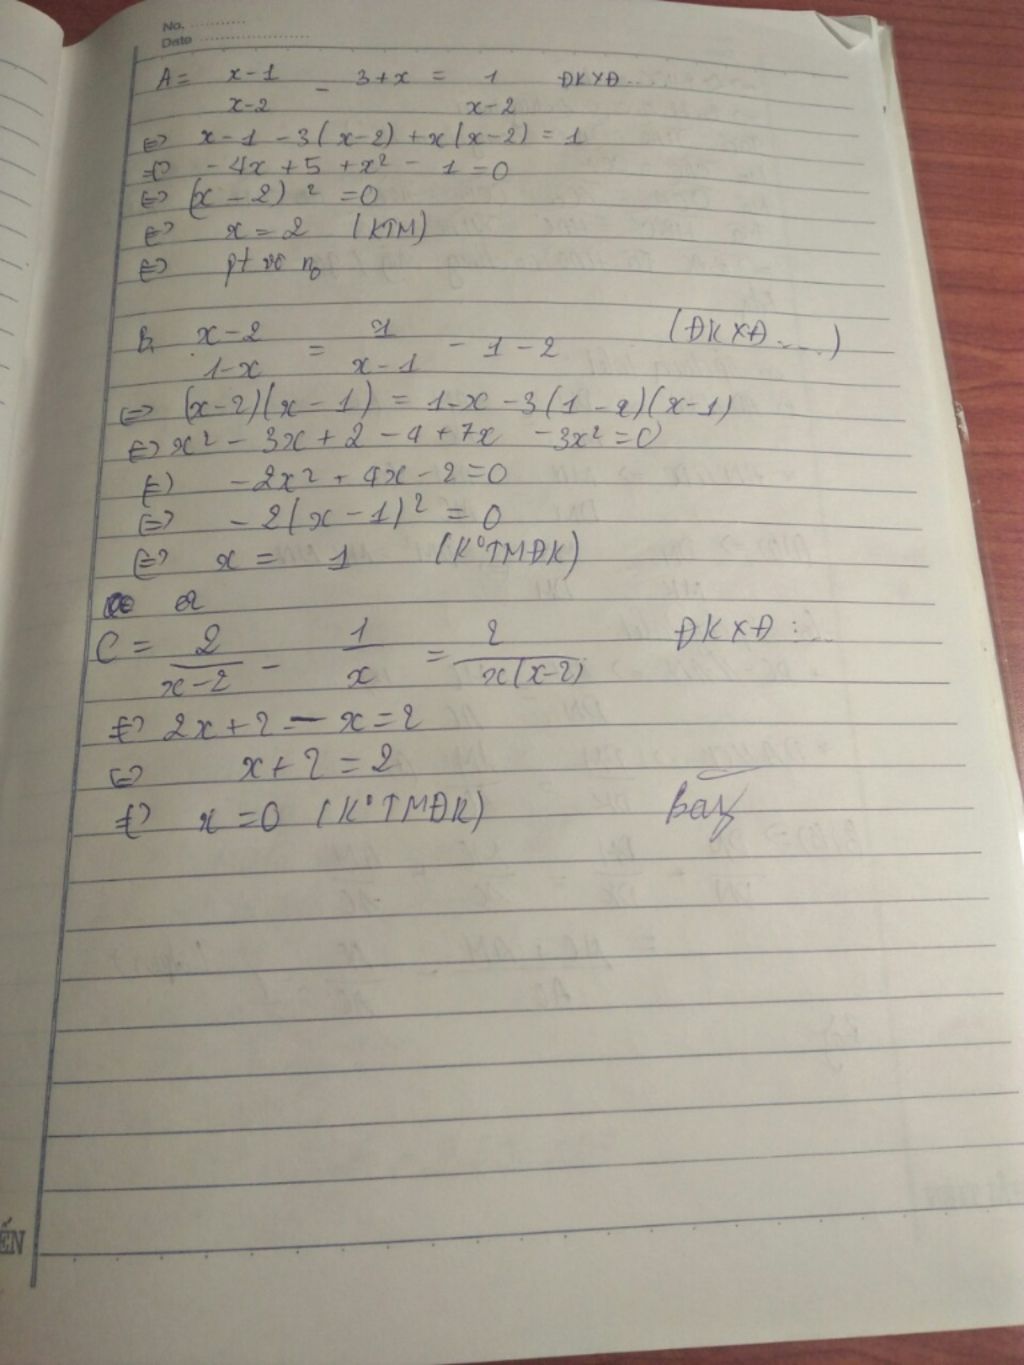 No. ............
Date ........................
A = x-1 / x-2 - 3+x = 1 / x-2 ĐKXĐ....
<=> x-1-3(x-2)+x(x-2)=1
<=> -4x+5+x² - 1=0
<=> (x-2)²=0
<=> x=2 (KTM)
<=> pt vô no
B, x-2 / 1-x = 1 / x-1 - 1-2 (ĐKXĐ....)
<=> (x-2)(x-1) = 1-x -3(1-x)(x-1)
<=> x²-3x+2-4+7x -3x²=0
<=> -2x²+4x-2=0
<=> -2(x-1)²=0
<=> x=1 (K°TMĐK)
C = 2 / x-2 - 1 / x = 2 / x(x-2) ĐKXĐ:...
<=> 2x+2-x=2
<=> x+2=2
<=> x=0 (K°TMĐK)
ẾN